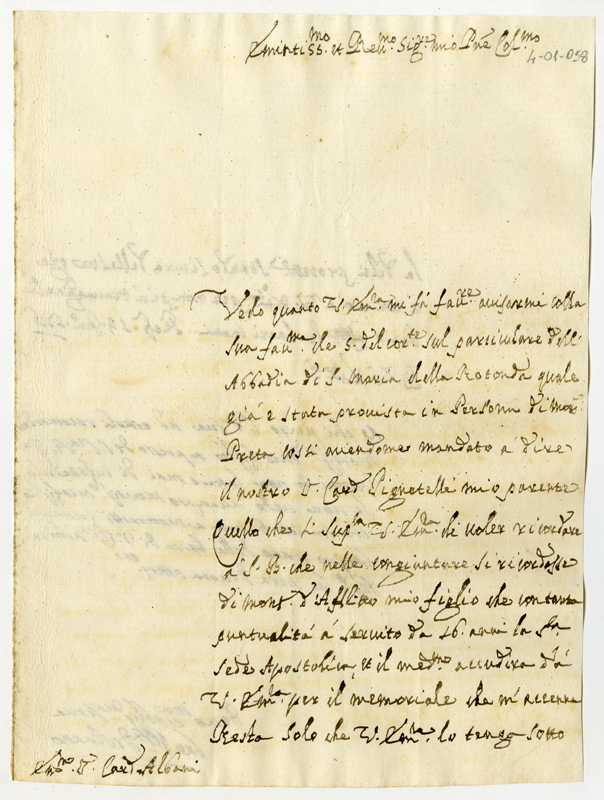 Eminentiss.mo et Reu.mo Sig.re mio P.ne Col.mo
4-01-058
Vedo quanto V. Em.za mi fà fau.re auisarmi colla
sua fau.ma de 5. del cor.te sul particulare dell'
Abbadia di S. Maria della Rotonda quale
già è stata prouista in Persona di Mons.
Preta costi auendome mandato à dire
il nostro S. Card Pignatelli mio parente
Quello che li sup.co V. Em.za di uoler ricordare
à S. B. che nelle congiunture si ricordasse
di Mons. d'Afflitto mio figlio che con tanta
puntualità à seruito da 16. anni la S.ta
Sede Apostolica, et il med.mo accudira dà
V. Em.za per il memoriale che m'accenna
Resta solo che V. Em.za lo tenga sotto
Em.mo S. Card Albani